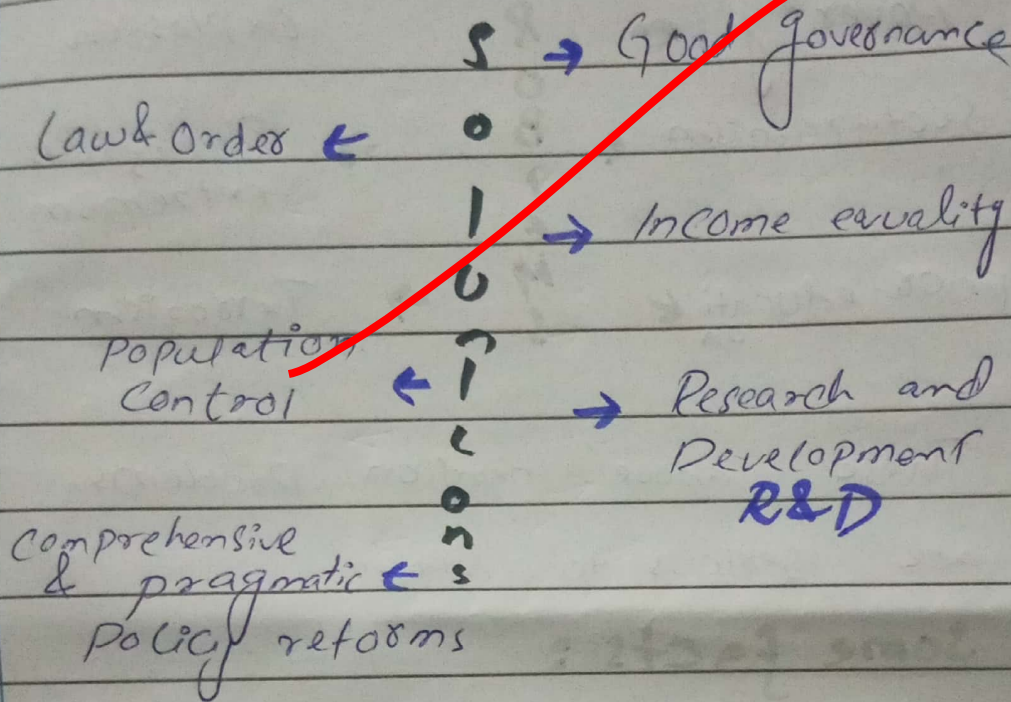 Solutions
→ Good governance
Law & Order ←
→ Income equality
Population
Control ←
→ Research and
Development
R&D
Comprehensive
& pragmatic ←
Policy reforms
Some facts: